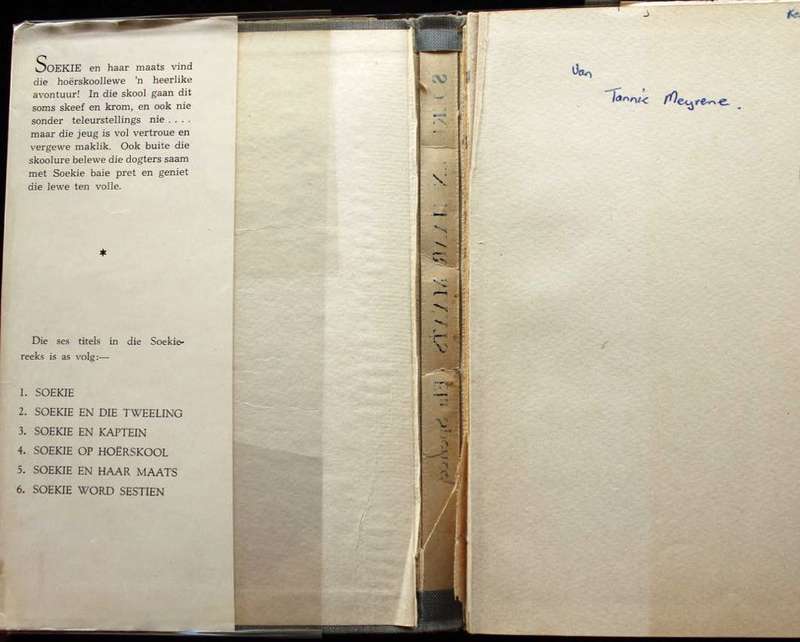 SOEKIE en haar maats vind
die hoërskoollewe 'n heerlike
avontuur! In die skool gaan dit
soms skeef en krom, en ook nie
sonder teleurstellings nie . . . .
maar die jeug is vol vertroue en
vergewe maklik. Ook buite die
skoolure belewe die dogters saam
met Soekie baie pret en geniet
die lewe ten volle.
*
Die ses titels in die Soekie-
reeks is as volg:—
1. SOEKIE
2. SOEKIE EN DIE TWEELING
3. SOEKIE EN KAPTEIN
4. SOEKIE OP HOËRSKOOL
5. SOEKIE EN HAAR MAATS
6. SOEKIE WORD SESTIEN
Van
Tannie Meyrene.